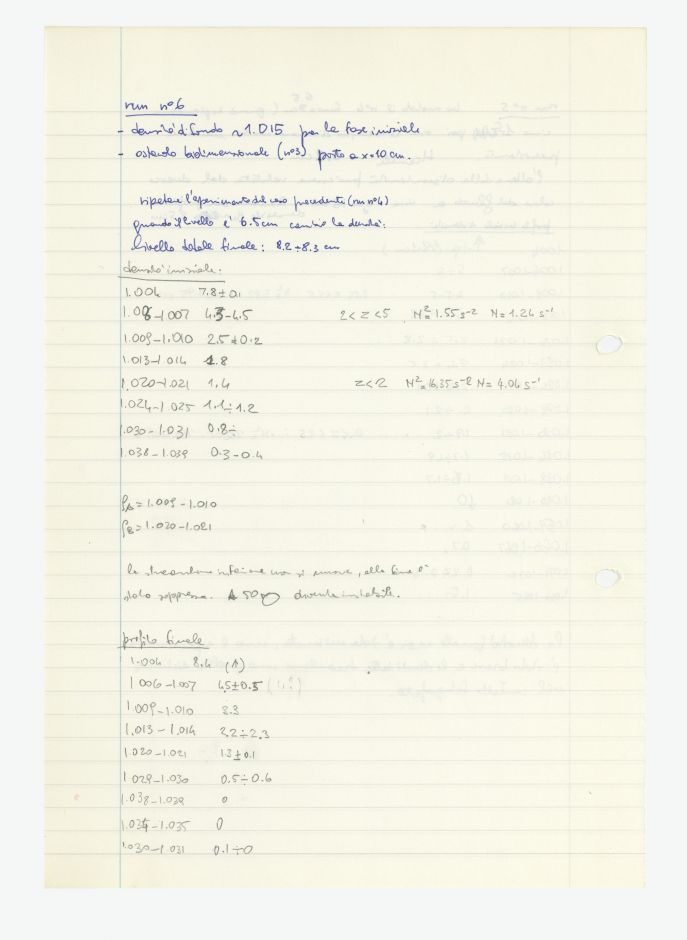 run n°6
- densità di fondo ~ 1.015 per la fase iniziale
- ostacolo bidimensionale (n°3) posto a x=10 cm.
ripetere l'esperimento del caso precedente (run n°4)
quando il livello è 6.5cm cambio la densità:
livello totale finale: 8.2÷8.3 cm
densità iniziale:
1.004 7.8±0.1
1.006-1.007 4.3-4.5 2<z<5 N²=1.55 s⁻² N=1.24 s⁻¹
1.009-1.010 2.5±0.2
1.013-1.014 1.8
1.020-1.021 1.4 z<2 N²=16.35 s⁻² N=4.04 s⁻¹
1.024-1.025 1.1÷1.2
1.030-1.031 0.8÷
1.038-1.039 0.3-0.4
ρA=1.009-1.010
ρB=1.020-1.021
la inferiore non si muove, alla fine è
stato soppressa. A 50 diventa instabile.
profilo finale
1.004 8.4 (↑)
1.006-1.007 4.5±0.5
1.009-1.010 3.3
1.013-1.014 2.2÷2.3
1.020-1.021 1.3±0.1
1.029-1.030 0.5÷0.6
1.038-1.039 0
1.034-1.035 0
1.030-1.031 0.1÷0